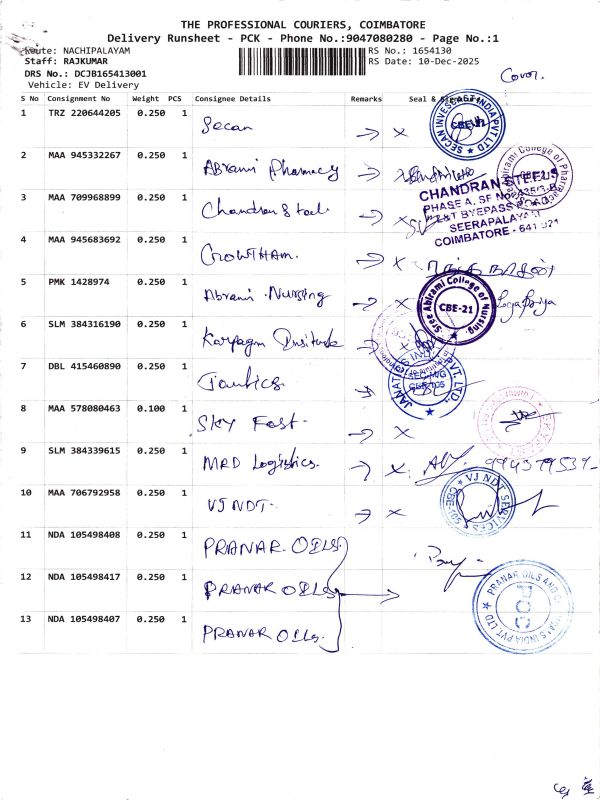 THE PROFESSIONAL COURIERS, COIMBATORE
Delivery Runsheet - PCK - Phone No.:9047080280 - Page No.:1
Route: NACHIPALAYAM
RS No.: 1654130
Staff: RAJKUMAR
RS Date: 10-Dec-2025
DRS No.: DCJB165413001
Vehicle: EV Delivery
Cover.
S No Consignment No Weight PCS Consignee Details Remarks Seal &
1 TRZ 220644205 0.250 1 Secan
SECAN INVEST CASTINGS INDIA PVT LTD
2 MAA 945332267 0.250 1 Abrami Pharmacy
Sree Abirami College of Pharmacy
3 MAA 709968899 0.250 1 Chandran Steel
CHANDRAN STEELS
PHASE A, SF No 435/3-B
L&T BYEPASS ROAD
SEERAPALAYAM
COIMBATORE - 641 021
4 MAA 945683692 0.250 1 GOWTHAM.
5 PMK 1428974 0.250 1 Abrami Nursing
Sree Abirami College of Nursing
CBE-21
6 SLM 384316190 0.250 1 Karpagm
7 DBL 415460890 0.250 1
PVT. LTD.
8 MAA 578080463 0.100 1 SKY Fast.
9 SLM 384339615 0.250 1 MRD Logistics.
10 MAA 706792958 0.250 1 VJ NDT.
VJ NDT SERVICES
11 NDA 105498408 0.250 1 PRANAR OILS
12 NDA 105498417 0.250 1 PRANAR OILS
13 NDA 105498407 0.250 1 PRANAR OILs.
PRANAR OILS AND INDIA PVT. LTD